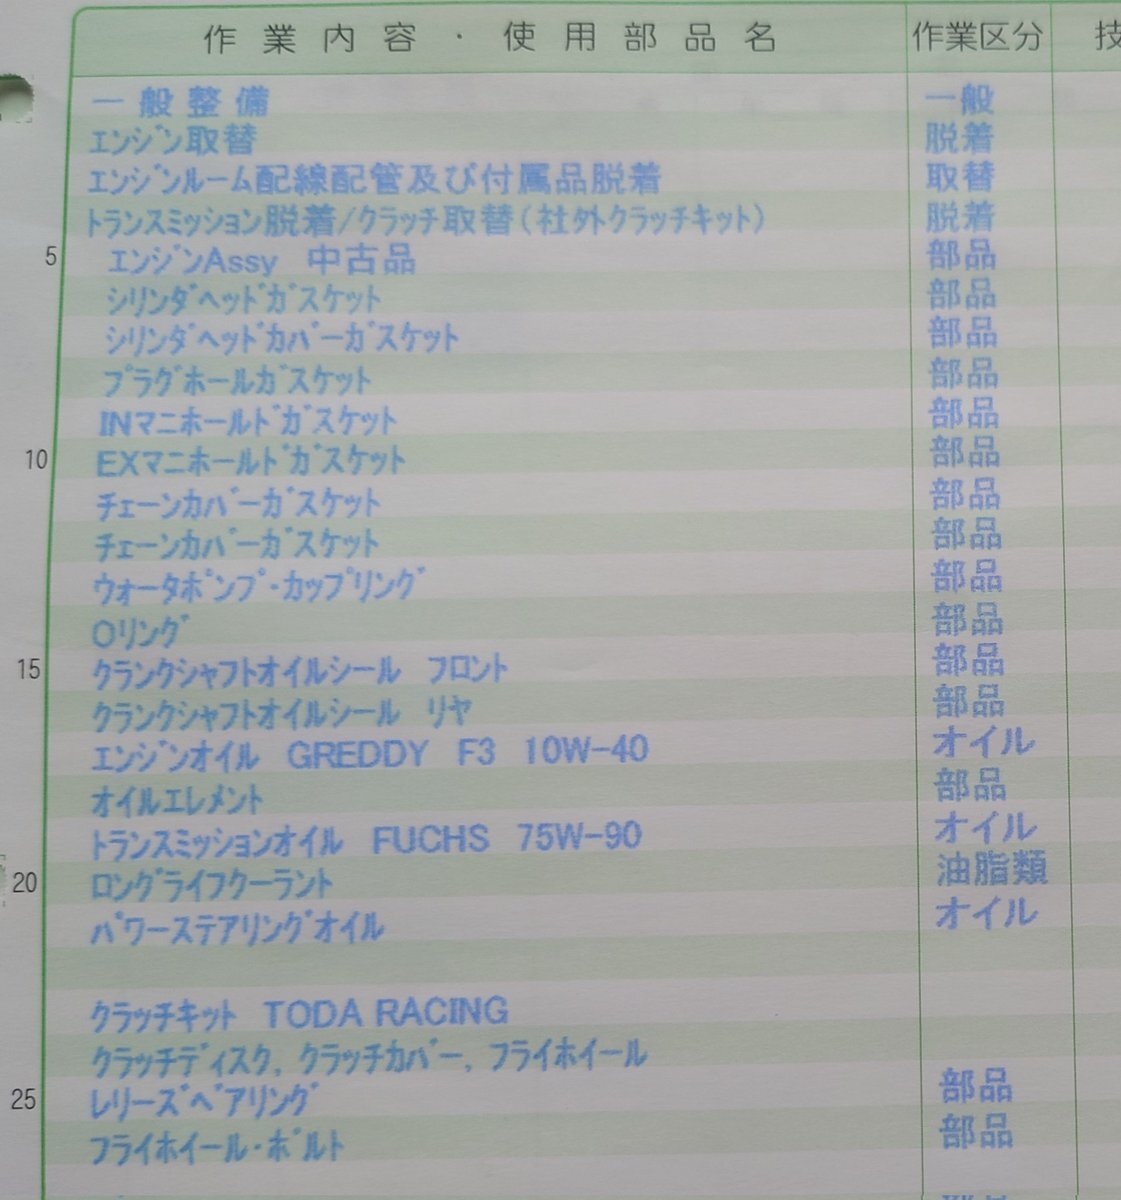 作業内容・使用部品名 作業区分 技
一般整備 一般
ｴﾝｼﾞﾝ取替 脱着
ｴﾝｼﾞﾝﾙｰﾑ配線配管及び付属品脱着 取替
ﾄﾗﾝｽﾐｯｼｮﾝ脱着/ｸﾗｯﾁ取替(社外ｸﾗｯﾁｷｯﾄ) 脱着
5 ｴﾝｼﾞﾝAssy 中古品 部品
ｼﾘﾝﾀﾞﾍｯﾄﾞｶﾞｽｹｯﾄ 部品
ｼﾘﾝﾀﾞﾍｯﾄﾞｶﾊﾞｰｶﾞｽｹｯﾄ 部品
ﾌﾟﾗｸﾞﾎｰﾙｶﾞｽｹｯﾄ 部品
INﾏﾆﾎｰﾙﾄﾞｶﾞｽｹｯﾄ 部品
10 EXﾏﾆﾎｰﾙﾄﾞｶﾞｽｹｯﾄ 部品
ﾁｪｰﾝｶﾊﾞｰｶﾞｽｹｯﾄ 部品
ﾁｪｰﾝｶﾊﾞｰｶﾞｽｹｯﾄ 部品
ｳｫｰﾀﾎﾟﾝﾌﾟ･ｶｯﾌﾟﾘﾝｸﾞ 部品
Oﾘﾝｸﾞ 部品
15 ｸﾗﾝｸｼｬﾌﾄｵｲﾙｼｰﾙ ﾌﾛﾝﾄ 部品
ｸﾗﾝｸｼｬﾌﾄｵｲﾙｼｰﾙ ﾘﾔ 部品
ｴﾝｼﾞﾝｵｲﾙ GREDDY F3 10W-40 オイル
ｵｲﾙｴﾚﾒﾝﾄ 部品
ﾄﾗﾝｽﾐｯｼｮﾝｵｲﾙ FUCHS 75W-90 オイル
20 ﾛﾝｸﾞﾗｲﾌｸｰﾗﾝﾄ 油脂類
ﾊﾟﾜｰｽﾃｱﾘﾝｸﾞｵｲﾙ オイル
ｸﾗｯﾁｷｯﾄ TODA RACING
ｸﾗｯﾁﾃﾞｨｽｸ, ｸﾗｯﾁｶﾊﾞｰ, ﾌﾗｲﾎｲｰﾙ
25 ﾚﾘｰｽﾞﾍﾞｱﾘﾝｸﾞ 部品
ﾌﾗｲﾎｲｰﾙ･ﾎﾞﾙﾄ 部品